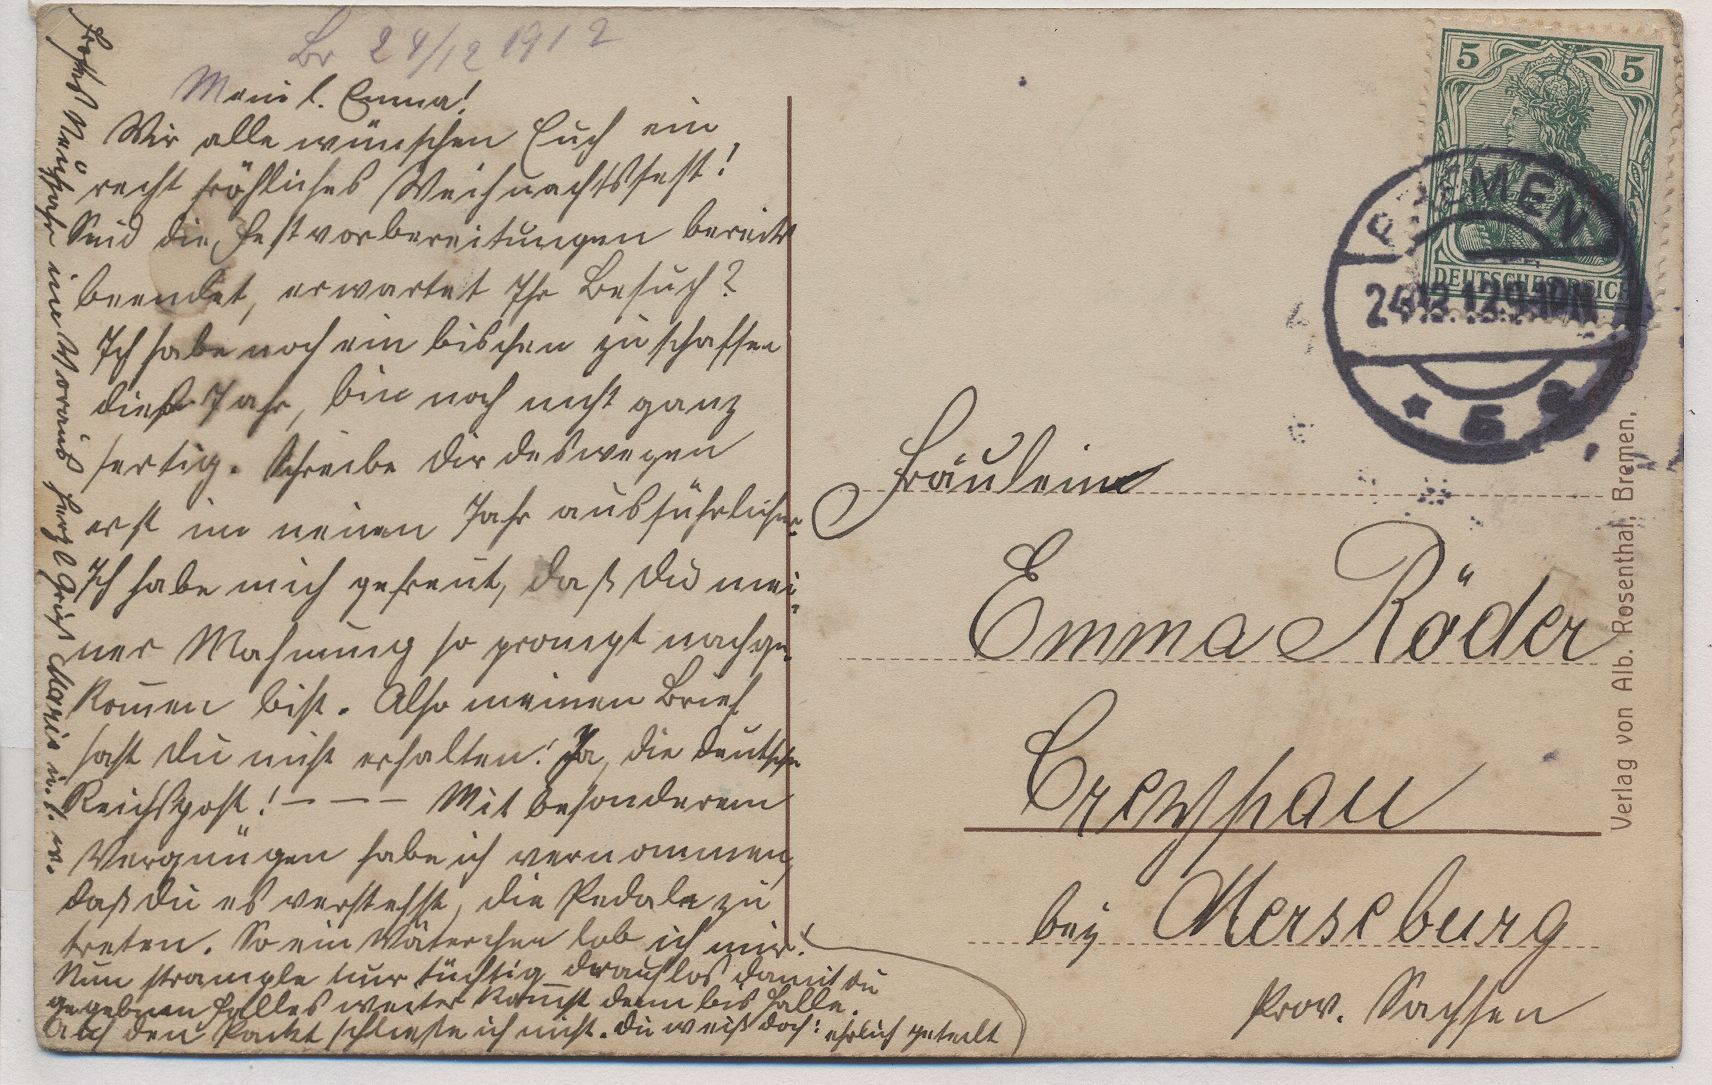 Br 24/12 1912
Mein l. Emma!
Wir alle wünschen Euch ein
recht fröhliches Weihnachtsfest!
Seid die Festvorbereitungen bereits
beendet, erwartet Ihr Besuch?
Ich habe noch ein bischen zu schaffen
dies Jahr, bin noch nicht ganz
fertig. Schreibe Dir deswegen
erst im neuen Jahr ausführlicher.
Ich habe mich gefreut, daß Du mei-
ner Mahnung so prompt nachge-
kom̄en bist. Also meinen Brief
hast Du nicht erhalten! Ja, die deutsche
Reichspost! – – – Mit besonderem
Vergnügen habe ich vernommen,
daß Du es verstehst, die Pedale zu
treten. So ein Väterchen lob ich mir.
Nun strample nur tüchtig drauf los damit Du
gegebnen Falles weiter kom̄st denn bis Halle.
Auch den Packt schließe ich nicht. Du weißt doch: ehrlich geteilt
Neujahr im Voraus herzl Gruß Marie u. l. w.
5 5
DEUTSCHES REICH
BREMEN
24.12.12.9-10N
* 5
Fräulein
Emma Röder
Creypau
bey Merseburg
Prov. Sachsen
Verlag von Alb. Rosenthal, Bremen,